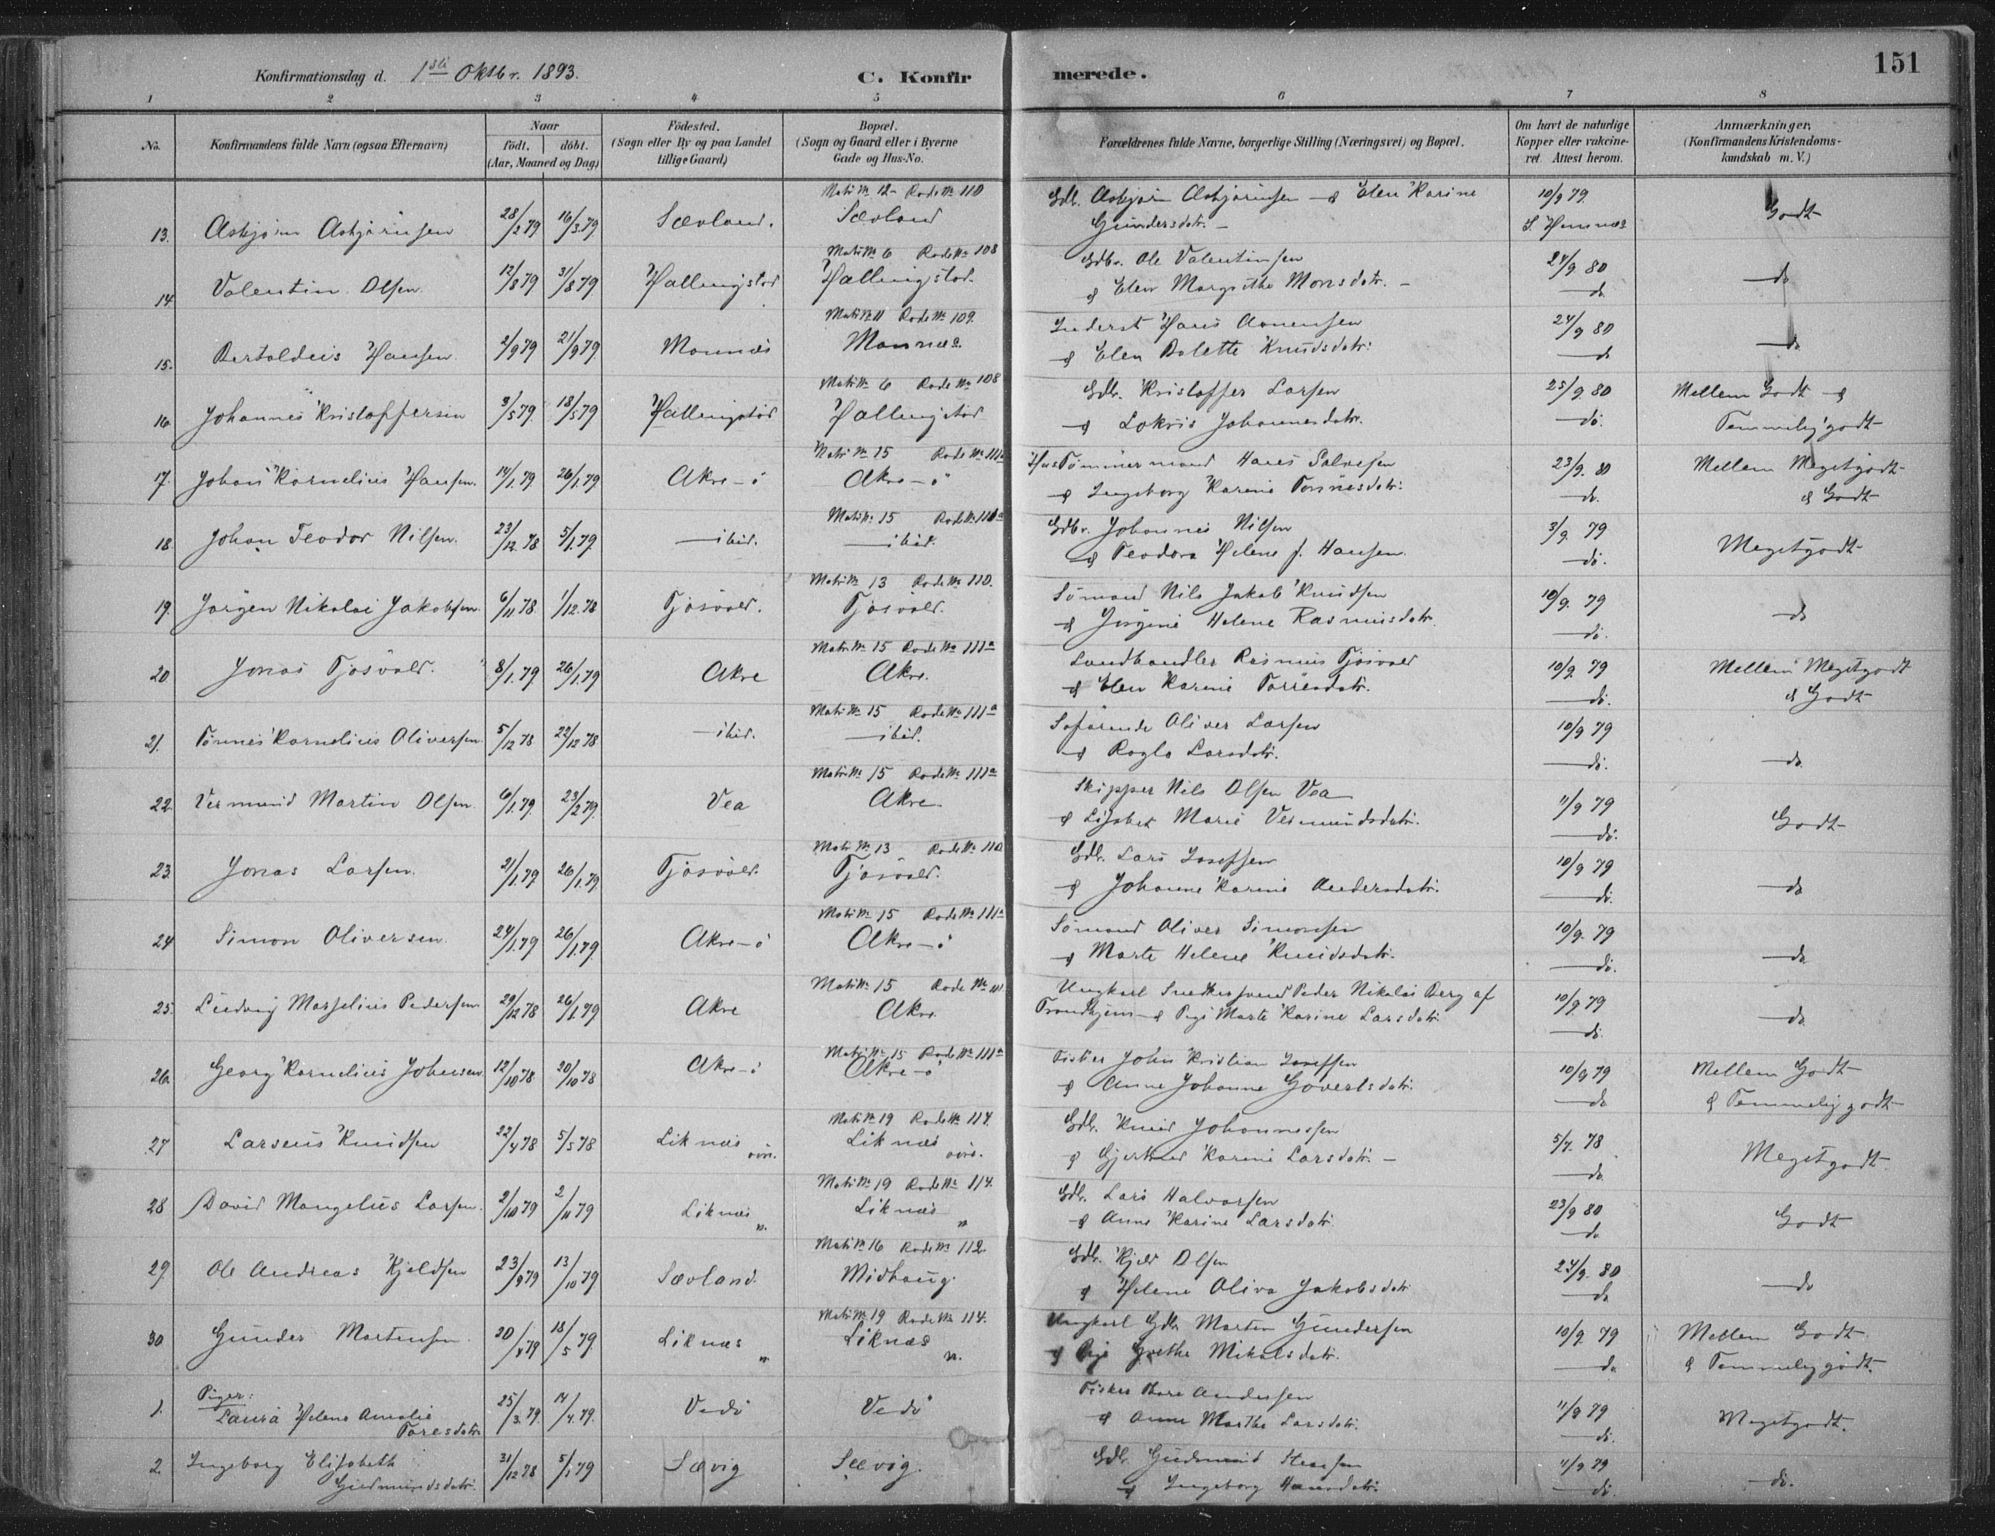 Konfirmationsdag d. 1ste Oktbr. 1893.
C. Konfir merede.
151
1 2 3 4 5 6 7 8
No. Konfirmandens fulde Navn (ogsaa Efternavn)
Naar født. døbt. (Aar, Maaned og Dag)
Fødested. (Sogn eller By og paa Landet tillige Gaard)
Bopæl. (Sogn og Gaard eller i Byerne Gade og Hus-No.
Forældrenes fulde Navne, borgerlige Stilling (Næringsvei) og Bopæl.
Om havt de naturlige Kopper eller vakcineret. Attest herom.
Anmærkninger. (Konfirmandens Kristendomskundskab m. V.)
Matr. № 12 - Rode № 110
13. Asbjørn Asbjørnsen 28/2 79 16/3 79 Sævland. Sævland Gdb. Asbjørn Asbjørnsen & Elen Karine 10/9 79 Godt
Gundersdatr. - S. Hemnæs
Matr № 6 Rode № 108
14. Valentin Olsen 12/8 79 31/8 79 Hallingstad Hallingstad. Gdbr. Ole Valentinsen 24/9 80 do
& Elen Margrethe Monsdatr. - do
Matr № 11 Rode № 109.
15. Bertoldus Hansen 2/9 79 21/9 79 Mannæs Mannæs. Inderst Hans Aanensen 24/9 80 do
& Elen Bolette Knudsdatr. do
Matr № 6 Rode № 108
16. Johannes Kristoffersen 3/5 79 18/5 79 Hallingstad Hallingstad Gdb. Kristoffer Larsen 25/9 80 Mellem Godt &
& Lokris Johannesdatr. do. Temmelig godt
Matr № 15 Rode № 111a
17. Johan Kornelius Hansen. 14/1 79 26/1 79 Akre-ø Akre-ø Hus Tømmermand Hans Salvesen 23/9 80 Mellem Megetgodt
& Ingeborg Karine Tønnesdatr. do. & Godt
Matr № 15 Rode № 111a
18. Johan Teodor Nilsen. 23/12 78 5/1 79 ibid. ibid. Gdbr. Johannes Nilsen 3/9 79 Megetgodt
& Teodora Helene f. Hansen. do.
Matr № 13 Rode № 110.
19. Jørgen Nikolai Jakobsen 6/11 78 1/12 78 Tjøsvold. Tjøsvold. Sømand Nils Jakob Knudsen 10/9 79 do
& Jørgine Helene Rasmusdatr. do.
Matr № 15 Rode № 111a
20 Jonas Tjøsvold. 8/1 79 26/1 79 Akre Akre. Landhandler Rasmus Tjøsvold 10/9 79 Mellem Megetgodt
& Elen Karine Torresdatr. do. & Godt
Matr № 15 Rode № 111a
21. Tønnes Kornelius Oliversen 5/12 78 22/12 78 ibid. ibid. Søfarende Oliver Larsen 10/9 79 do
& Ragla Larsdatr. do.
Matr № 15 Rode № 111a
22. Vermund Martin Olsen 6/1 79 23/2 79 Vea Akre Skipper Nils Olsen Vea 11/9 79 Godt
& Lisabet Marie Vermundsdatr. do.
Matr № 13 Rode № 110
23. Jonas Larsen. 2/1 79 26/1 79 Tjøsvold. Tjøsvold. Gdb. Lars Josefsen 10/9 79 do
& Johanne Karine Andersdatr. do.
Matr № 15 Rode № 111a
24 Simon Oliversen 24/1 79 26/1 79 Akre-ø Akre-ø Sømand Oliver Simonsen 10/9 79 do
& Marte Helene Knudsdatr. do.
Matr № 15 Rode № 111
25. Ludvig Masselius Pedersen 29/12 78 26/1 79 Akre Akre Ungkarl Snedkersvend Peder Nikolai Berg af 10/9 79 do
Trondhjem & Pige Marte Karine Larsdatr. do.
Matr № 15 Rode № 111a
26. Georg Kornelius Johnsen 12/10 78 20/10 78 Akre-ø Akre-ø Fisker John Kristian Josefsen 10/9 79 Mellem Godt
& Anne Johanne Govertsdatr. do & Temmelig godt
Matr № 19 Rode № 114.
27 Larseus Knudsen 22/4 78 5/5 78 Liknæs øvre. Liknæs øvre. Gdb. Knud Johannessen 5/7 78 Megetgodt
& Gjertrud Karine Larsdatr. - do
Matr № 19 Rode № 114.
28 David Mangelus Larsen. 2/10 79 2/11 79 Liknæs n. Liknæs n Gdb. Lars Halvorsen 23/9 80 Godt
& Anne Karine Larsdatr. do
Matr № 16 Rode № 112.
29. Ole Andreas Kjeldsen 23/9 79 13/10 79 Sævland. Midhaug. Gdb. Kjeld Olsen 24/9 80 do
& Helene Oliva Jakobsdatr do
Matr № 19 Rode № 114.
30 Gunder Mortensen 20/4 79 18/5 79 Liknæs n Liknæs n. Ungkarl Gdb Morten Gundersen 10/9 79 Mellem Godt
& Pige Grethe Mikalsdatr. do & Temmelig godt.
Piger:
1. Laura Helene Amalie 25/3 79 14/4 79. Vedø Vedø Fisker Thore Andersen 11/9 79 Megetgodt.
Toresdatr & Anne Marthe Larsdatr. do.
2. Ingeborg Elisabeth 31/12 78 5/1 79 Sævig Sævig. Gdb. Gudmund Steensen 11/9 79 do.
Gudmundsdatr. & Ingeborg Hansdatr. do.